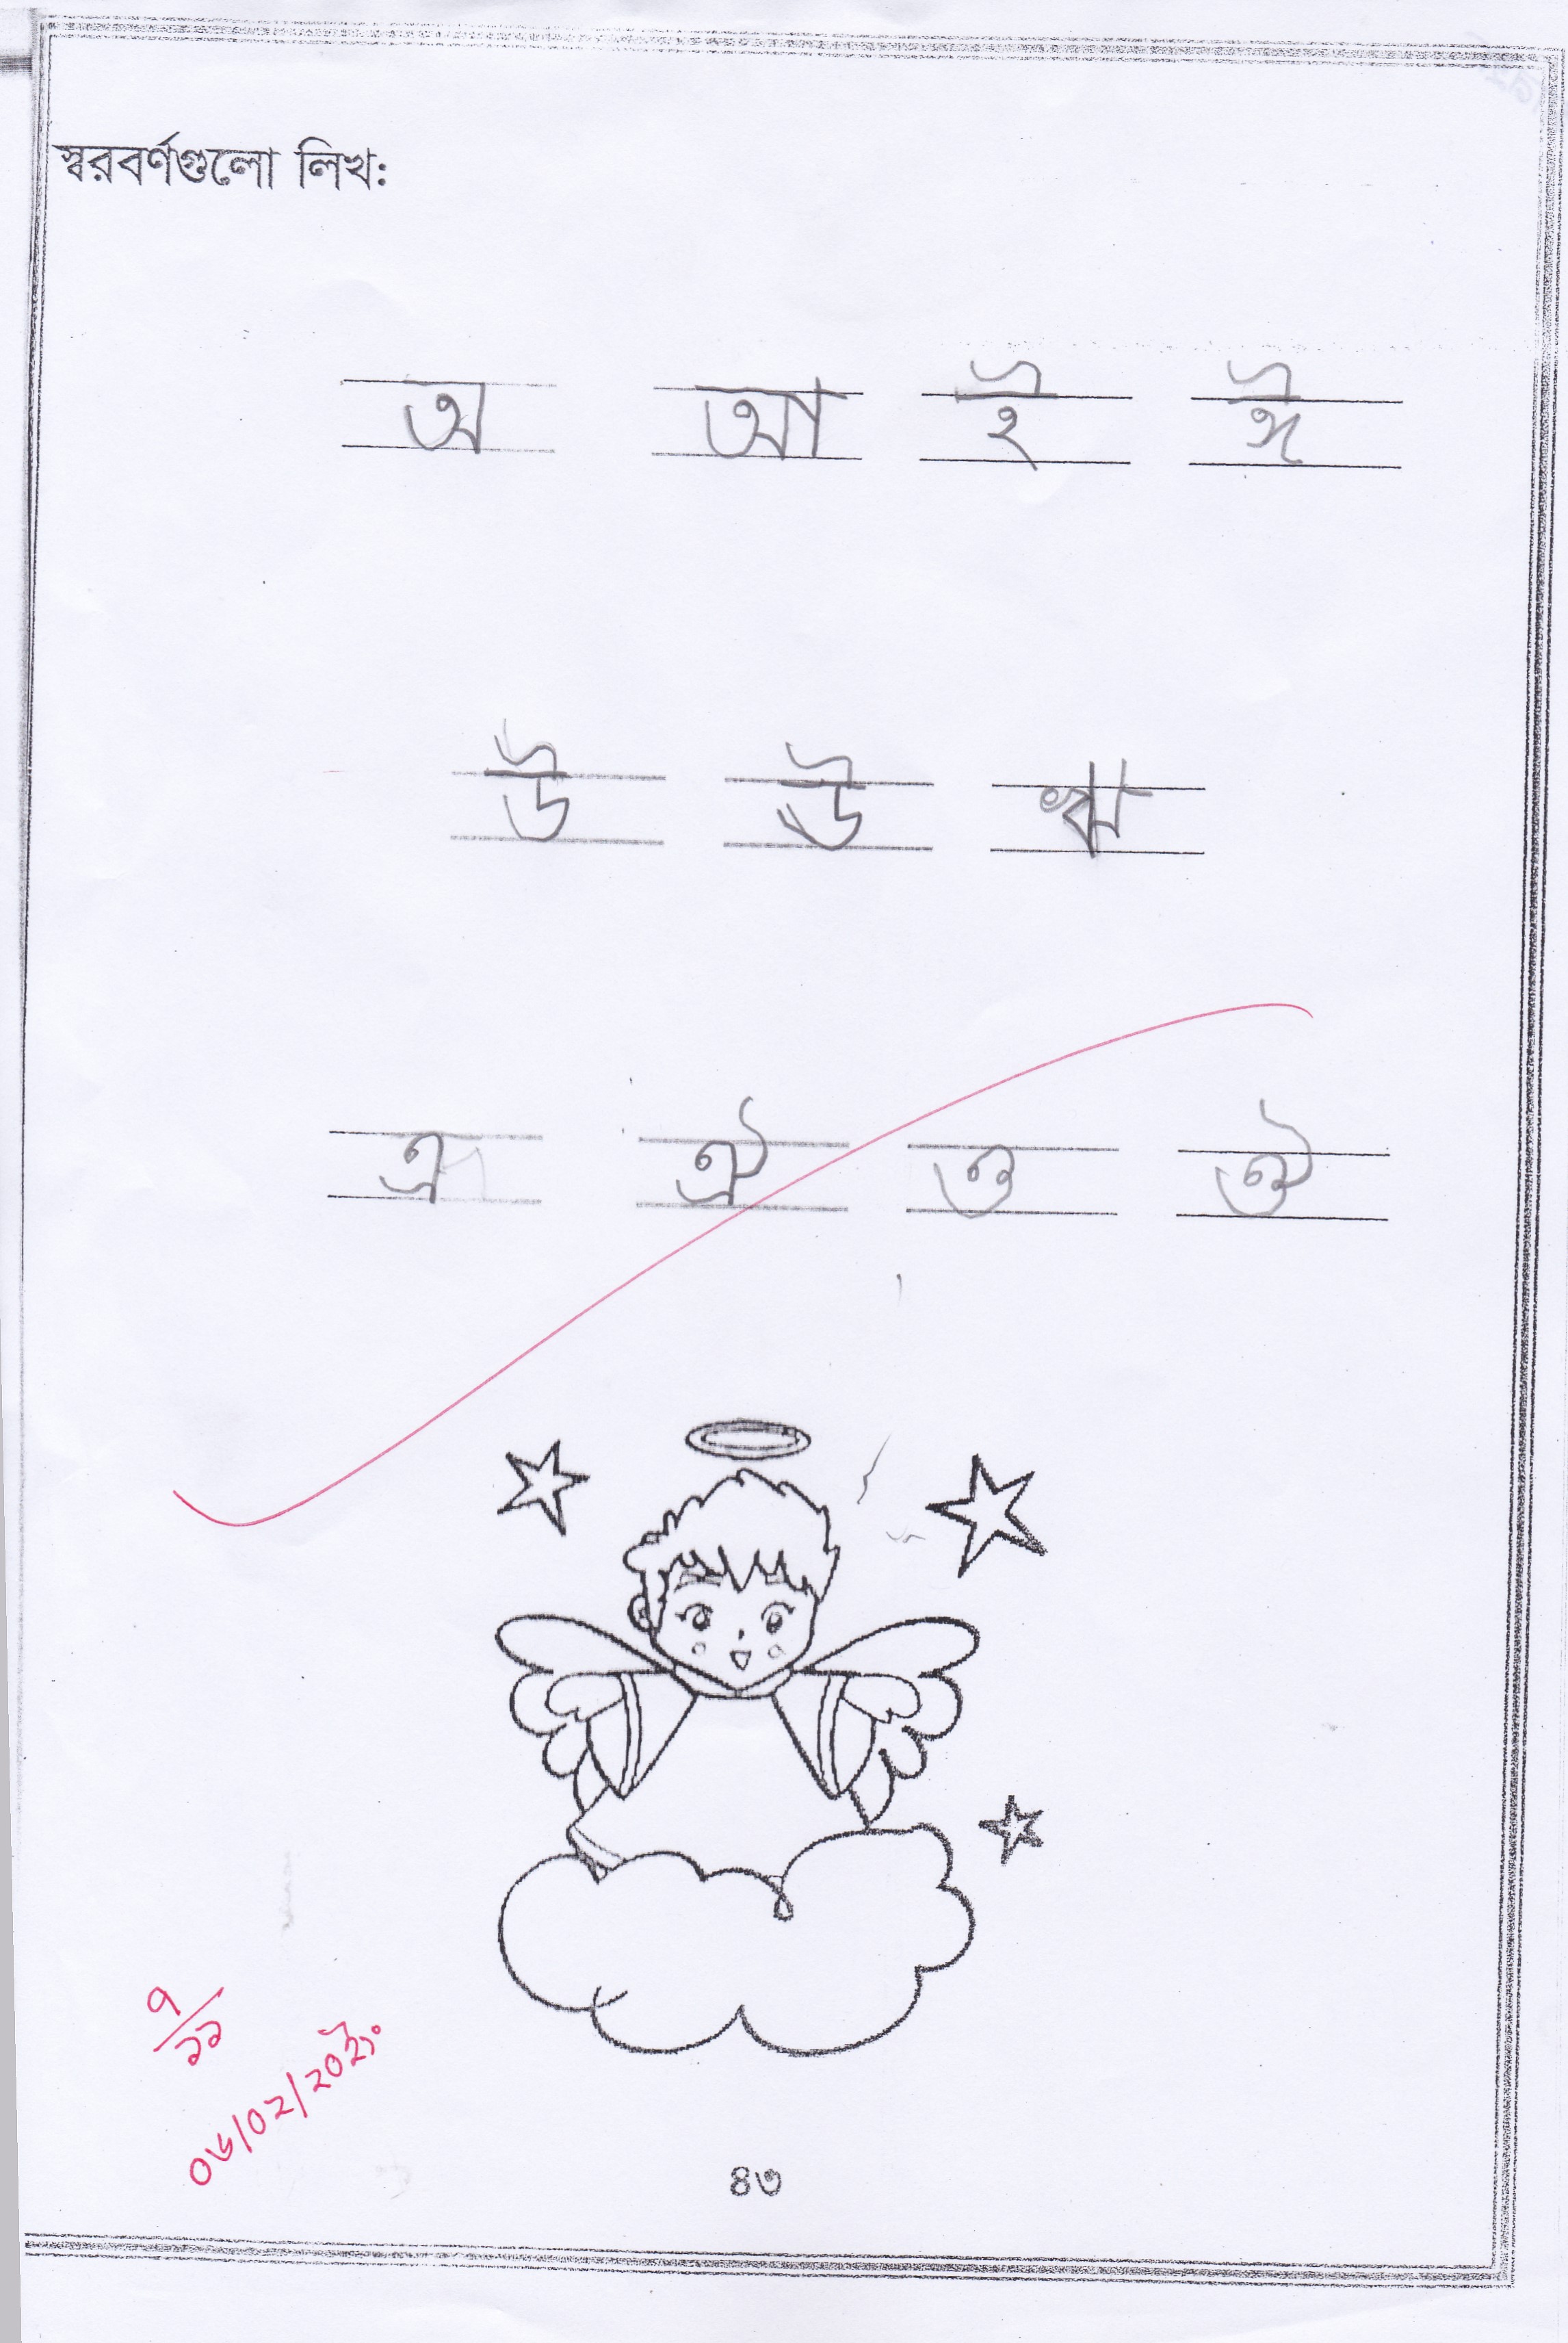 স্বরবর্ণগুলো লিখ:
অ আ ই ঈ
উ ঊ ঋ
এ ঐ ও ঔ
৭
১১
০৬/০২/২০
৪৩